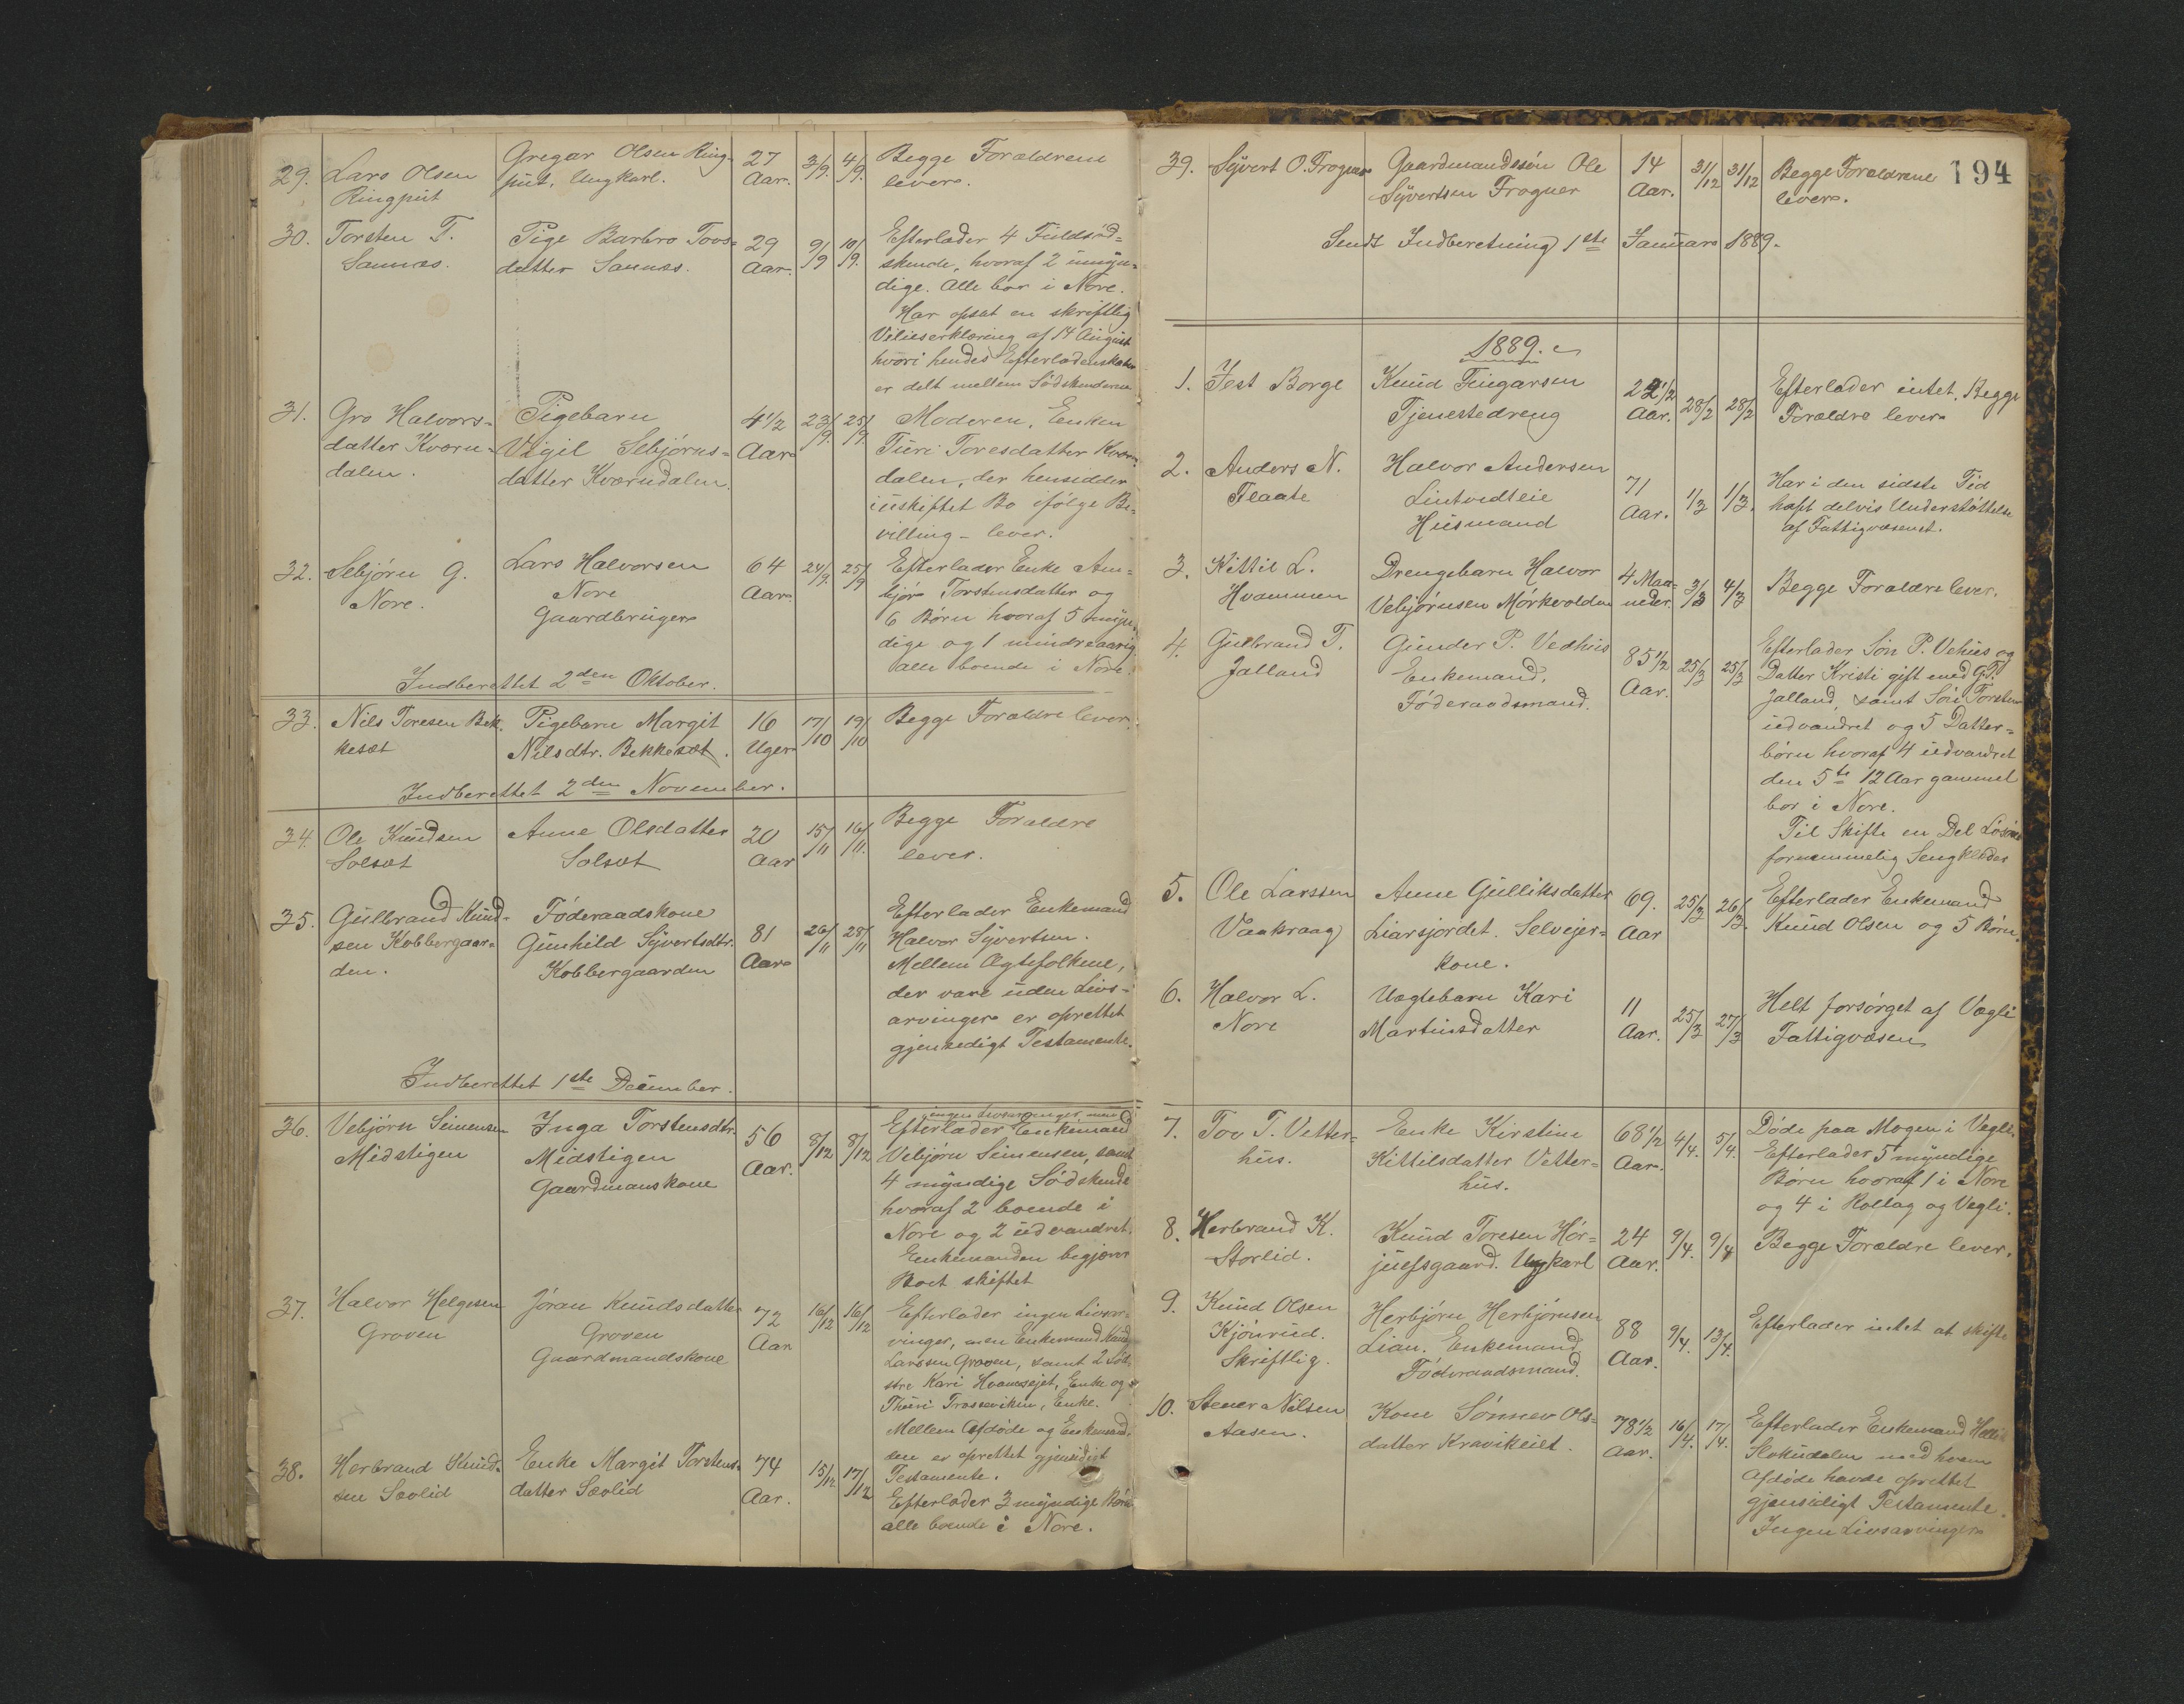 29. Lars Olsen Ringpüt Gregar Olsen Ring- püt, Ungkarl. 27 Aar. 3/9. 4/9. Begge Forældrene lever.
30. Torsten T. Sannæs. Pige Barbro Tovs- datter Sannæs. 29 Aar. 9/9 10/9. Efterlader 4 Füldsød-
skende, hvoraf 2 ümyn-
dige. Alle bor i Nore.
Har opsat en skriftlig
Vilieserklæring af 14 August
hvori hendes Efterladenskaber
er delt mellem Södskenderne
31. Gro Halvors- datter Kværn- dalen. Pigebarn Vigil Sebjörns- datter Kværndalen. 4 1/2 Aar 23/9. 25/9. Moderen, Enken
Türi Toresdatter Kværn-
dalen, der hensidder
i üskiftet Bo ifölge Be-
villing - lever.
32. Sebjörn G. Nore. Lars Halvorsen Nore Gaardbruger 64 Aar. 24/9 25/9 Efterlader Enke Am-
björ Torstensdatter og
6 Börn hvoraf 5 myn-
dige og 1 mindreaarig
alle boende i Nore.
Indberettet 2den Oktober.
33. Nils Toresen Bek- kesæt Pigebarn Margit Nilsdtr. Bekkesæt. 16 Uger 17/10 19/10 Begge Forældre lever.
Indberettet 2den November.
34. Ole Knüdsen Solsæt Anne Olsdatter Solsæt 20 Aar 15/11 16/11. Begge Forældre lever.
35. Gülbrand Knüd- sen Kobbergaar- den. Föderaadskone Günhild Syvertsdtr. Kobbergaarden 81 Aar 26/11 28/11 Efterlader Enkemand
Halvor Syvertsen.
Mellem Ægtefolkene,
der vare üden Livs-
arvinger er oprettet
gjensidigt Testamente.
Indberettet 1ste December.
36. Vebjörn Simensen Midstigen Inga Torstensdtr. Midstigen Gaardmanskone 56 Aar. 8/12 8/12 ingen Livsarvinger, men
Efterlader Enkemand
Vebjörn Simensen, samt
4 myndige Södskende
hvoraf 2 boende i
Nore og 2 üdvandret.
Enkemanden begjærer
Boet skiftet
37. Halvor Helgesen Groven Jöran Knüdsdatter Groven Gaardmandskone 72 Aar 16/12 16/12 Efterlader ingen Livsar-
vinger, men Enkemand Knüd
Larssen Groven, samt 2 Söd-
stre Kari Hvamsejet, Enke og
Thüri Trosseviken, Enke.
Mellem Afdöde og Enkemand-
den er oprettet gjensidigt
Testamente.
38. Herbrand Knüd- sen Sævlid Enke Margit Torstens- datter Sævlid 74 Aar. 15/12 17/12 Efterlader 3 myndige Börn
alle boende i Nore.
194
39. Syvert O. Frogner Gaardmandssön Ole Syvertsen Frogner 14 Aar. 31/12 31/12 Begge Forældrene lever.
Sendt Indberetning 1ste Januar 1889.
1889.
1. Jest Borge Knüd Fingarsen Tjenestedreng 22 1/2 Aar. 28/2 28/2 Efterlader intet. Begge
Forældre lever
2. Anders N. Flaate Halvor Andersen Lintvedteie Hüsmand 71 Aar. 1/3 1/3. Har i den sidste Tid
havt delvis Understöttelse
af Fattigvæsenet.
3. Kittil L. Hvammen Drengebarn Halvor Vebjörnsen Mörkvolden 4 Maa- neder. 3/3 4/3 Begge Forældre lever.
4. Gülbrand T. Jalland Günder P. Vedhüs Enkemand, Föderaadsmand. 85 1/2 Aar. 25/3 25/3 Efterlader Sön P. Vehüs og
Datter Kristi gift med G.T.
Jalland, samt Sön Torsten
üdvandret og 5 Datter-
börn hvoraf 4 üdvandret
den 5te 12 Aar gammel
bor i Nore.
Til Skifte en Del Lösöre
fornemmelig Sengklæder
5. Ole Larssen Vaakraag Anne Gülliksdatter Liarsjordet. Selvejer- kone. 69. Aar 25/3 26/3. Efterlader Enkemand
Knüd Olsen og 5 Börn.
6. Halvor L. Nore Uægtebarn Kari Martinsdatter 11 Aar. 25/3 27/3 Helt forsörget af Vægli
Fattigvæsen
7. Tov T. Vetter- hüs. Enke Kirstine Kittilsdatter Vetter- hüs. 68 1/2 Aar. 4/4. 5/4. Döde paa Mogen i Vegli.
Efterlader 5 myndige
Börn hvoraf 1 i Nore
og 4 i Rollag og Vegli.
8. Herbrand K. Storlid. Knüd Toresen Hör- jülfsgaard. Ungkarl 24 Aar. 9/4. 9/4 Begge Forældre lever.
9. Knüd Olsen Kjönrüd. Skriftlig. Herbjörn Herbjörnsen Lian. Enkemand Föderaadsmand. 88 Aar. 9/4. 13/4. Efterlader intet at skifte
10. Stener Nilsen Aasen. Kone Sönnev Ols- datter Kravikeiet. 78 1/2 Aar. 16/4. 17/4. Efterlader Enkemand
med hvem
Afdöde havde oprettet
gjensidigt Testamente.
Ingen Livsarvinger